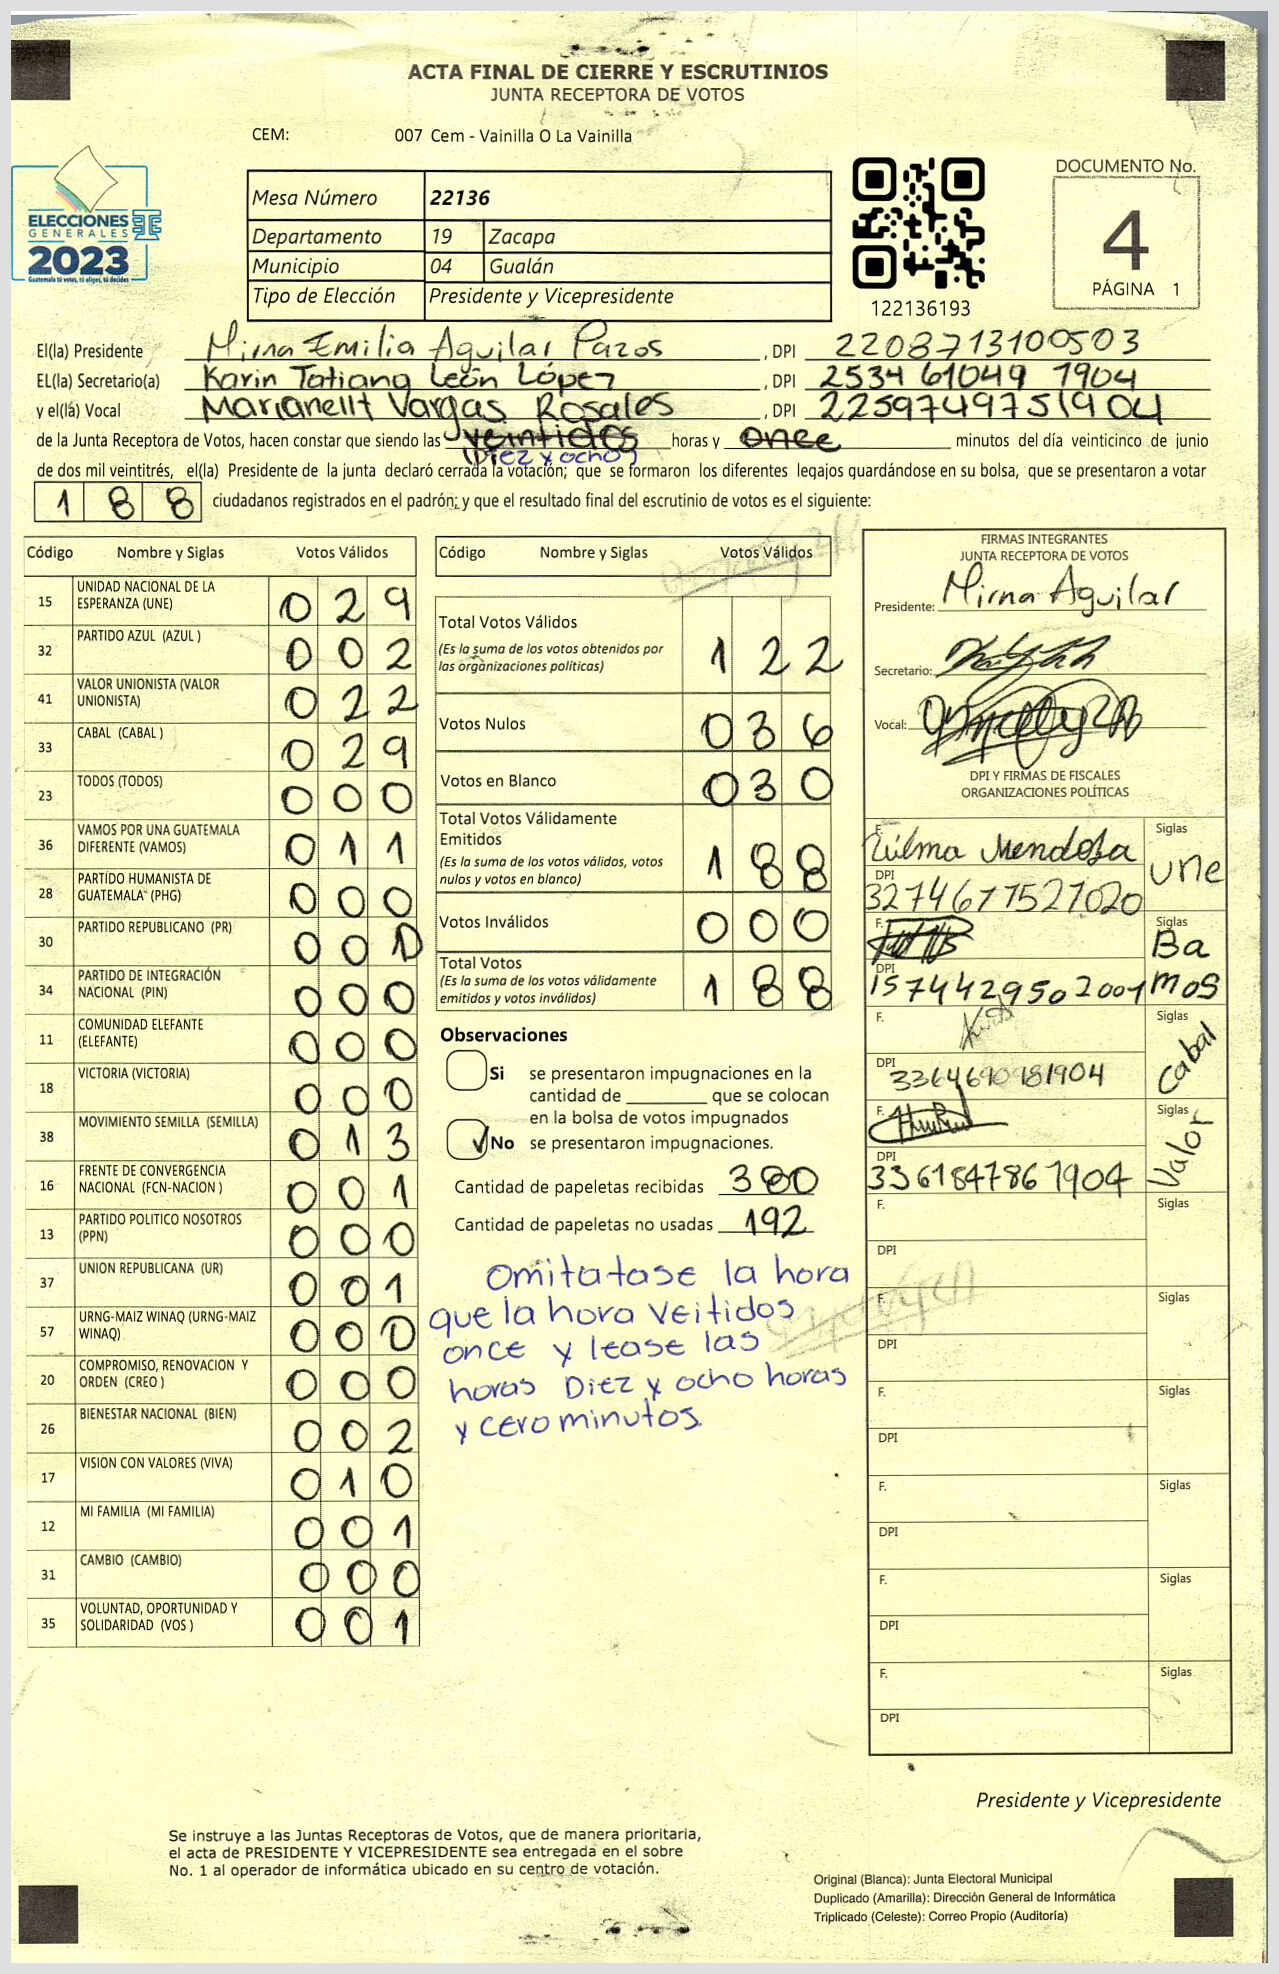 ACTA FINAL DE CIERRE Y ESCRUTINIOS
JUNTA RECEPTORA DE VOTOS
CEM: 007 Cem - Vainilla O La Vainilla
ELECCIONES
GENERALES
2023
Guatemala tú votas, tú eliges, tú decides
Mesa Número 22136
Departamento 19 Zacapa
Municipio 04 Gualán
Tipo de Elección Presidente y Vicepresidente
122136193
DOCUMENTO No.
4
PÁGINA 1
El(la) Presidente Mirna Emilia Aguilar Pazos , DPI 2208713100503
EL(la) Secretario(a) Karin Tatiana León López , DPI 2534 61049 1904
y el(la) Vocal Marianellt Vargas Rosales , DPI 2259749751904
de la Junta Receptora de Votos, hacen constar que siendo las veintidos horas y once minutos del día veinticinco de junio
Diez y ocho
de dos mil veintitrés, el(la) Presidente de la junta declaró cerrada la votación; que se formaron los diferentes legajos guardándose en su bolsa, que se presentaron a votar
188 ciudadanos registrados en el padrón; y que el resultado final del escrutinio de votos es el siguiente:
Código Nombre y Siglas Votos Válidos
15 UNIDAD NACIONAL DE LA ESPERANZA (UNE) 029
32 PARTIDO AZUL (AZUL ) 002
41 VALOR UNIONISTA (VALOR UNIONISTA) 022
33 CABAL (CABAL ) 029
23 TODOS (TODOS) 000
36 VAMOS POR UNA GUATEMALA DIFERENTE (VAMOS) 011
28 PARTIDO HUMANISTA DE GUATEMALA (PHG) 000
30 PARTIDO REPUBLICANO (PR) 00
34 PARTIDO DE INTEGRACIÓN NACIONAL (PIN) 000
11 COMUNIDAD ELEFANTE (ELEFANTE) 000
18 VICTORIA (VICTORIA) 000
38 MOVIMIENTO SEMILLA (SEMILLA) 013
16 FRENTE DE CONVERGENCIA NACIONAL (FCN-NACION ) 001
13 PARTIDO POLITICO NOSOTROS (PPN) 000
37 UNION REPUBLICANA (UR) 001
57 URNG-MAIZ WINAQ (URNG-MAIZ WINAQ) 000
20 COMPROMISO, RENOVACION Y ORDEN (CREO ) 000
26 BIENESTAR NACIONAL (BIEN) 002
17 VISION CON VALORES (VIVA) 010
12 MI FAMILIA (MI FAMILIA) 001
31 CAMBIO (CAMBIO) 000
35 VOLUNTAD, OPORTUNIDAD Y SOLIDARIDAD (VOS ) 001
Código Nombre y Siglas Votos Válidos
Total Votos Válidos 122
(Es la suma de los votos obtenidos por
las organizaciones politicas)
Votos Nulos 036
Votos en Blanco 030
Total Votos Válidamente
Emitidos 188
(Es la suma de los votos válidos, votos
nulos y votos en blanco)
Votos Inválidos 000
Total Votos 188
(Es la suma de los votos válidamente
emitidos y votos inválidos)
Observaciones
Si se presentaron impugnaciones en la
cantidad de que se colocan
en la bolsa de votos impugnados
No se presentaron impugnaciones.
Cantidad de papeletas recibidas 380
Cantidad de papeletas no usadas 192
Omitatase la hora
que la hora veitidos
once y lease las
horas Diez y ocho horas
y cero minutos.
FIRMAS INTEGRANTES
JUNTA RECEPTORA DE VOTOS
Presidente: Mirna Aguilar
Secretario:
Vocal:
DPI Y FIRMAS DE FISCALES
ORGANIZACIONES POLÍTICAS
F. Zulma Mendoza Siglas une
DPI 3274677527020
F. Siglas Bamos
DPI 1574429502001
F. Siglas Cabal
DPI 3364690981904
F. Siglas Valor
DPI 3361847861904
F. Siglas
DPI
F. Siglas
DPI
F. Siglas
DPI
F. Siglas
DPI
F. Siglas
DPI
F. Siglas
DPI
Presidente y Vicepresidente
Se instruye a las Juntas Receptoras de Votos, que de manera prioritaria,
el acta de PRESIDENTE Y VICEPRESIDENTE sea entregada en el sobre
No. 1 al operador de informática ubicado en su centro de votación.
Original (Blanca): Junta Electoral Municipal
Duplicado (Amarilla): Dirección General de Informática
Triplicado (Celeste): Correo Propio (Auditoría)